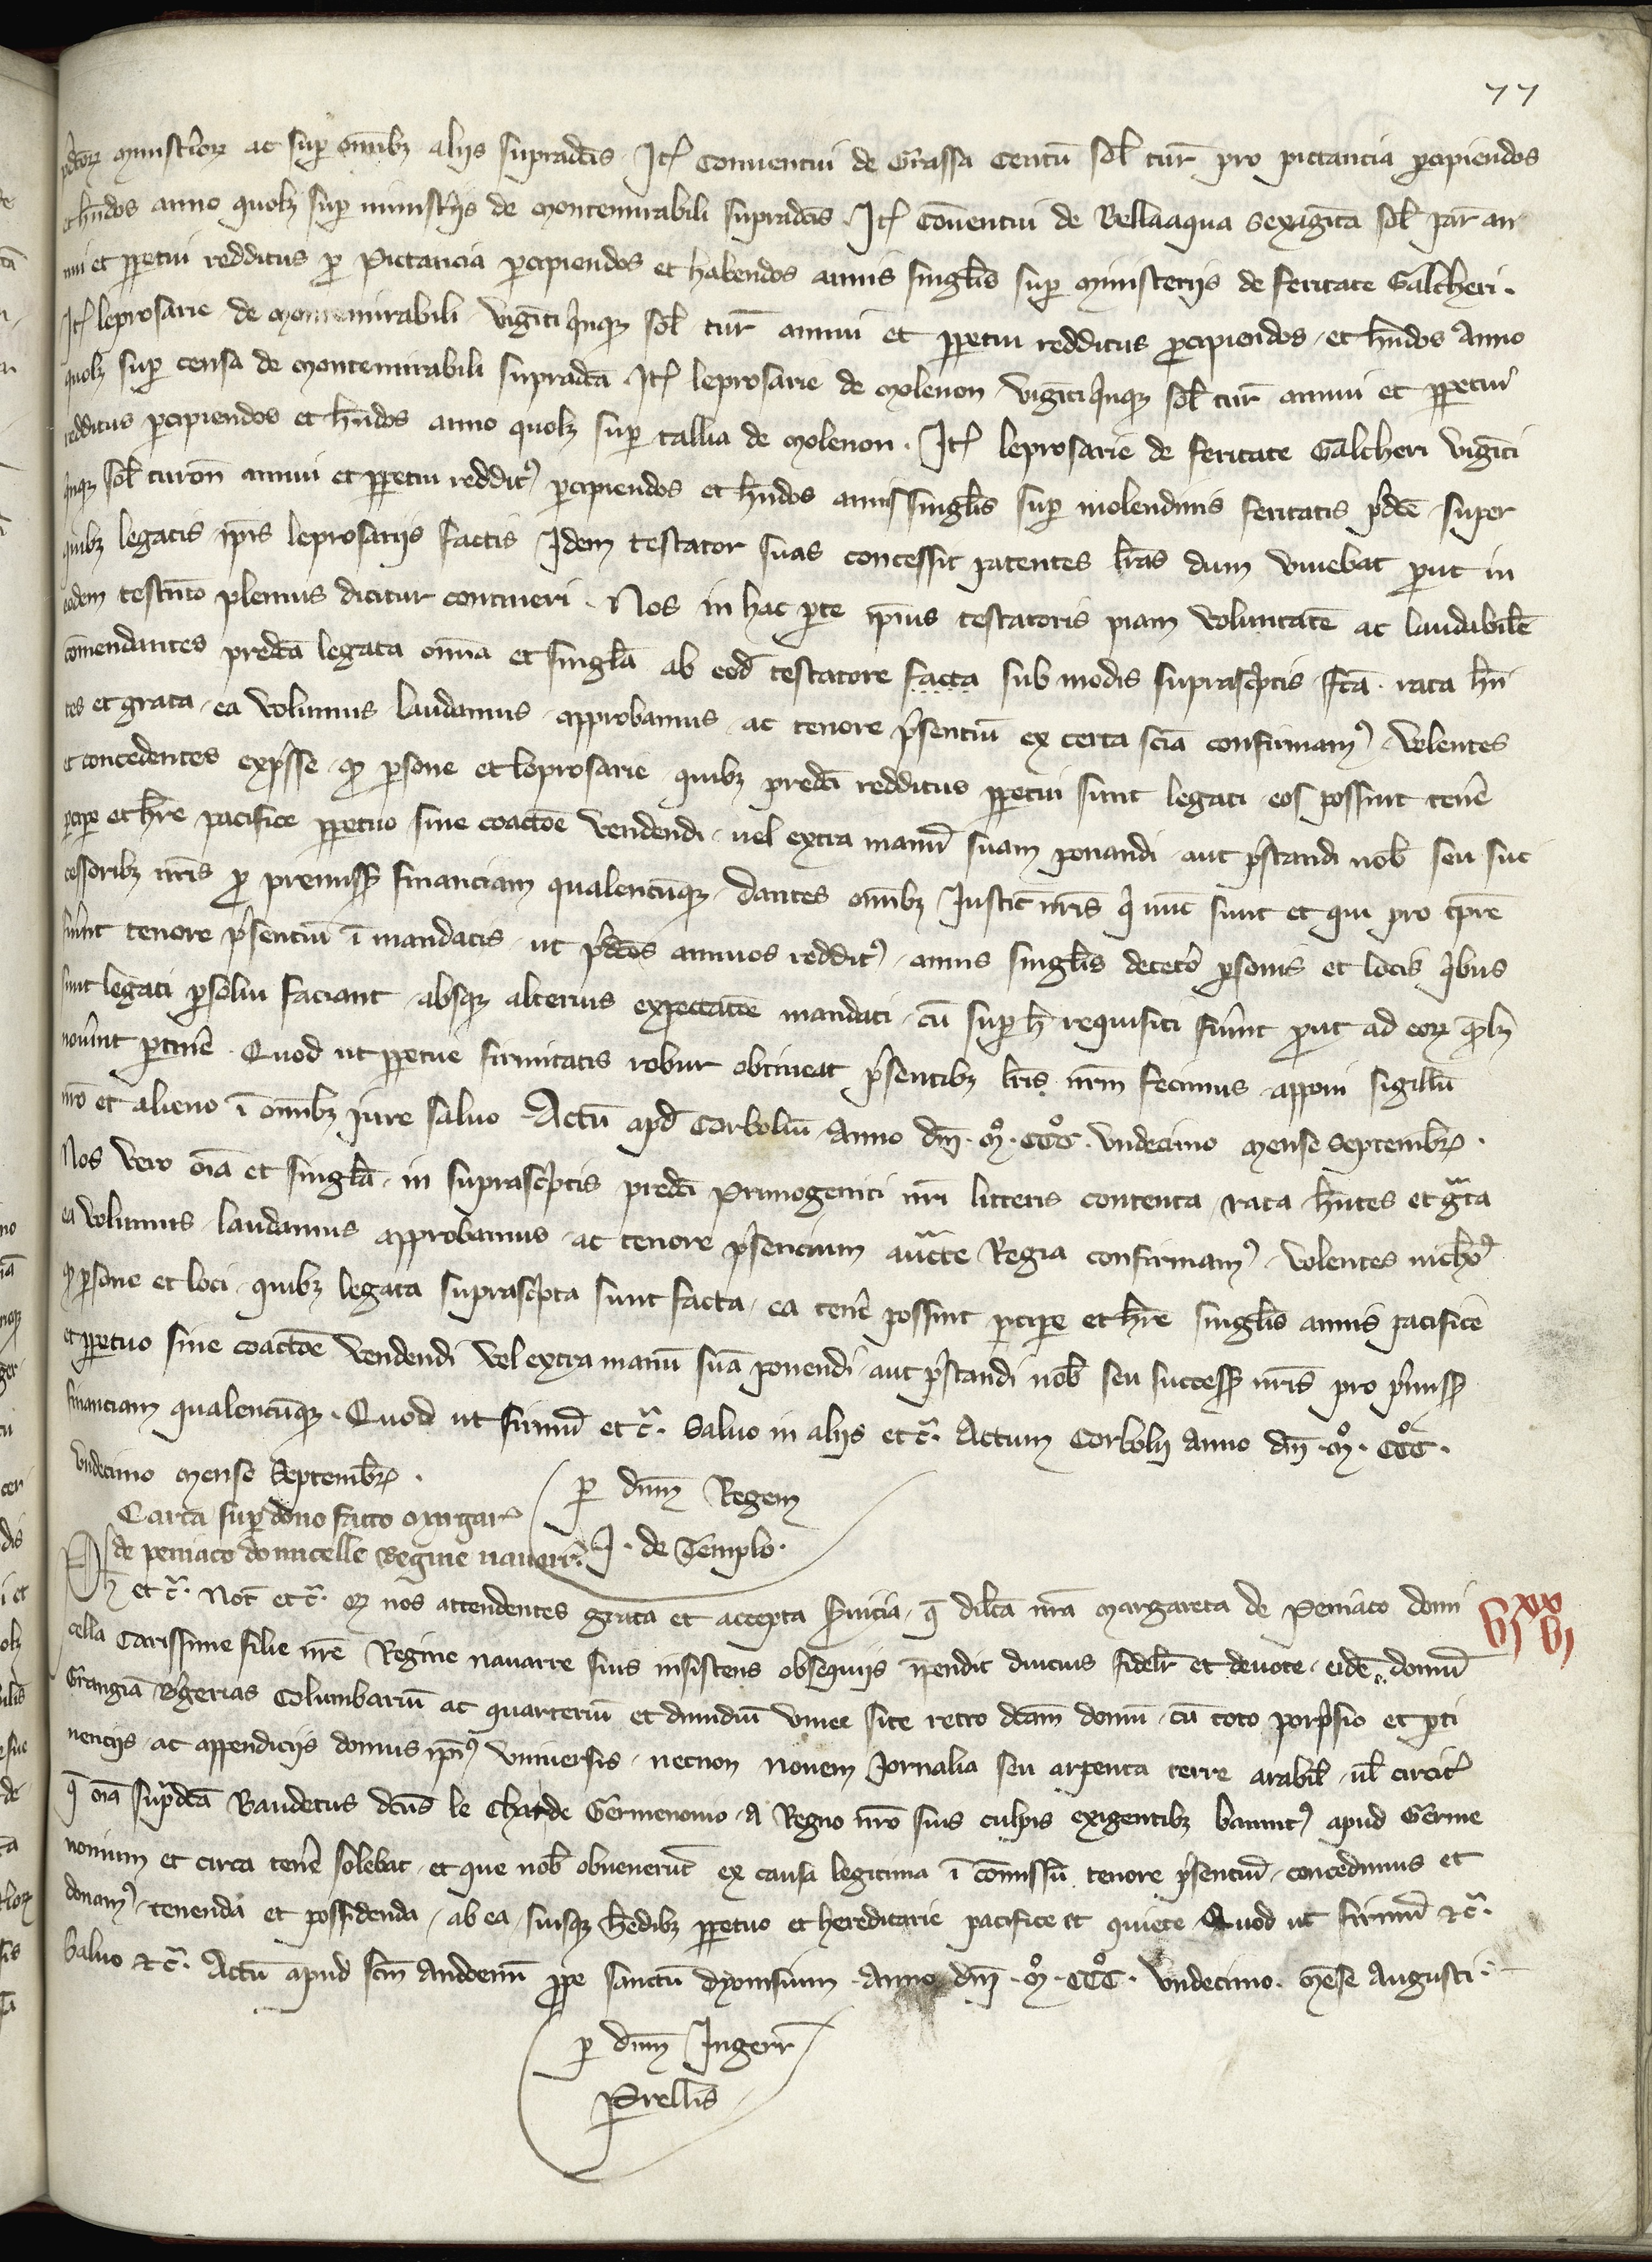 77
p̄dcōr ministeriorꝝ ac sup omībꝫ aliis supradc̄is Itē Conventui de Grassa Centū sol turˉ pro pictancia pcipiendos
et hn̄dos anno quolꝫ sup ministiis de Montemirabili supradc̄is Itē Cōventui de Bellaaqua Sexigita sol parˉ an
nui et ppetui redditus p Pictancia pcipiendos et habendos annis singlis sup ministeriis de feritate Galcheri.
Itē leprosarie de Montemirabili viginti quinqꝫ sol turˉ annui et ppetui redditus pcipiendos et hn̄dos Anno
quolꝫ sup censa de Montemirabili supradc̄a Itē leprosarie de Molenon viginti qinqꝫ sol turˉ annui et ppetui
redditus pcipiendos et hn̄dos anno quolꝫ sup tallia de Molenon. Itē leprosarie de feritate Galcheri viginti
qinqꝫ sol turon̄ annui et ppetui reddit᾿ pcipiendos et hn̄dos annis singlis sup molendinis feritatis p̄dc̄e super
quibꝫ legatis ip̄is leprosariis factis Idem testator suas concessit patentes lr̄as dum vivebat put in
eodem testm̄to plenius dicitur contineri. Nos in hac pte ip̄ius testatoris piam voluntatē ac laudabilē
cōmendantes predc̄a legata omīa et singl̄a ab eod̄ testatore facta sub modis suprasc̄ptis fc̄a. rata hn̄
tes et grata ea volumus laudamus approbamus ac tenore p̄sentiū ex certa scīa confirmam᾿ volentes
et concedentes exp̄sse qꝫ psone et leprosarie quibꝫ predc̄i redditus ppetui sunt legati eos possint tenē
pcipe et hr̄e pacifice ppetuo sine coactōe vendendi vel extra manū suam ponendi aut p̄standi nob̄ seu suc
cessoribꝫ nr̄is p premiss̄ financiam qualencūqꝫ dantes omībꝫ Justic̄ nr̄is q̄ nūc sunt et qui pro tp̄re
fuint tenore p̄sentiū ī mandatis ut p̄dc̄os annuos reddit᾿ annis singlis deceto psonis et locis qibus
sunt legati psolui faciant absqꝫ alterius expectatōe mandati cū sup h̄ requisiti fuint put ad eorꝝ qmlꝫ
nouint ptinē. Quod ut ppetue firmitatis robur obtineat p̄sentibꝫ lr̄is nr̄m fecimus apponi sigillū
nr̄o et alieno ī omībꝫ jure saluo. Actū apd̄ Corboliū Anno dn̄i. mᵒ. CCCᵒ. undecimo mense Septembr̄.
Nos vero oīa et singl̄a in suprasc̄ptis predc̄i Primogeniti nr̄i litteris contenta rata hn̄tes et gᵃta
ea volumus laudamus approbamus ac tenore p̄sencium auc̄te Regia confirmam᾿ volentes nichoᵈ
qꝫ psone et loci quibꝫ legata suprasc̄pta sunt facta ea tenē possint pcipe et hr̄e singlis annis pacifice
et ppetuo sine coactōe vendendi vel extra manū suā ponendi aut p̄standi nob̄ seu success̄ nr̄is pro p̄miss̄
financiam qualencūqꝫ. Quod ut firmū etc̄. Saluo in aliis etc̄. Actum Corbolii Anno dn̄i. mᵒ. CCCᵒ.
undecimo mense Septembr̄.
p dn̄m Regem
J. de Templo.
Carta sup dono facto Margarˉ
de peniaco domicelle Regine nauarrˉ
Ph etc̄. Not̄ etc̄. qꝫ nos attendentes grata et accepta s̄uicia q̄ dilc̄a nr̄a Margareta de Peniaco domi
cella Carissime filie nr̄e Regine nauarre suis insistens obsequiis īpendit diucius fidelr̄ et deuote eidē domū
Grangiā v̄gerias Columbariū ac quarteriū et dimidiū vinee site retro dc̄am domū cū toto porp̄sio et pti
nenciis ac appendiciis domus ip̄i᾿ vniuersis necnon nouem Jornalia seu arpenta terre arabil̄ vl̄ circit̄
q̄ oīa supᵃdc̄a Baudetus dc̄us le Charde Germenonio A Regno nr̄o suis culpis exigentibꝫ bannit᾿ apud Germe
nonium et circa tenē solebat et que nob̄ obuenerūt ex causa legitima ī cōmissū tenore p̄sentiū concedimus et
donam᾿ tenenda et possidenda ab ea suisqꝫ h̄edibꝫ ppetuo et hereditarie pacifice et quiete Quod ut firmū etc̄.
Saluo etc̄. Actū apud scm̄ Audoenū ppe sanctū dyonisium Anno dn̄i. mᵒ. CCCᵒ. undecimo. mēse Augusti.
p dn̄m Ingerrˉ
Prellis